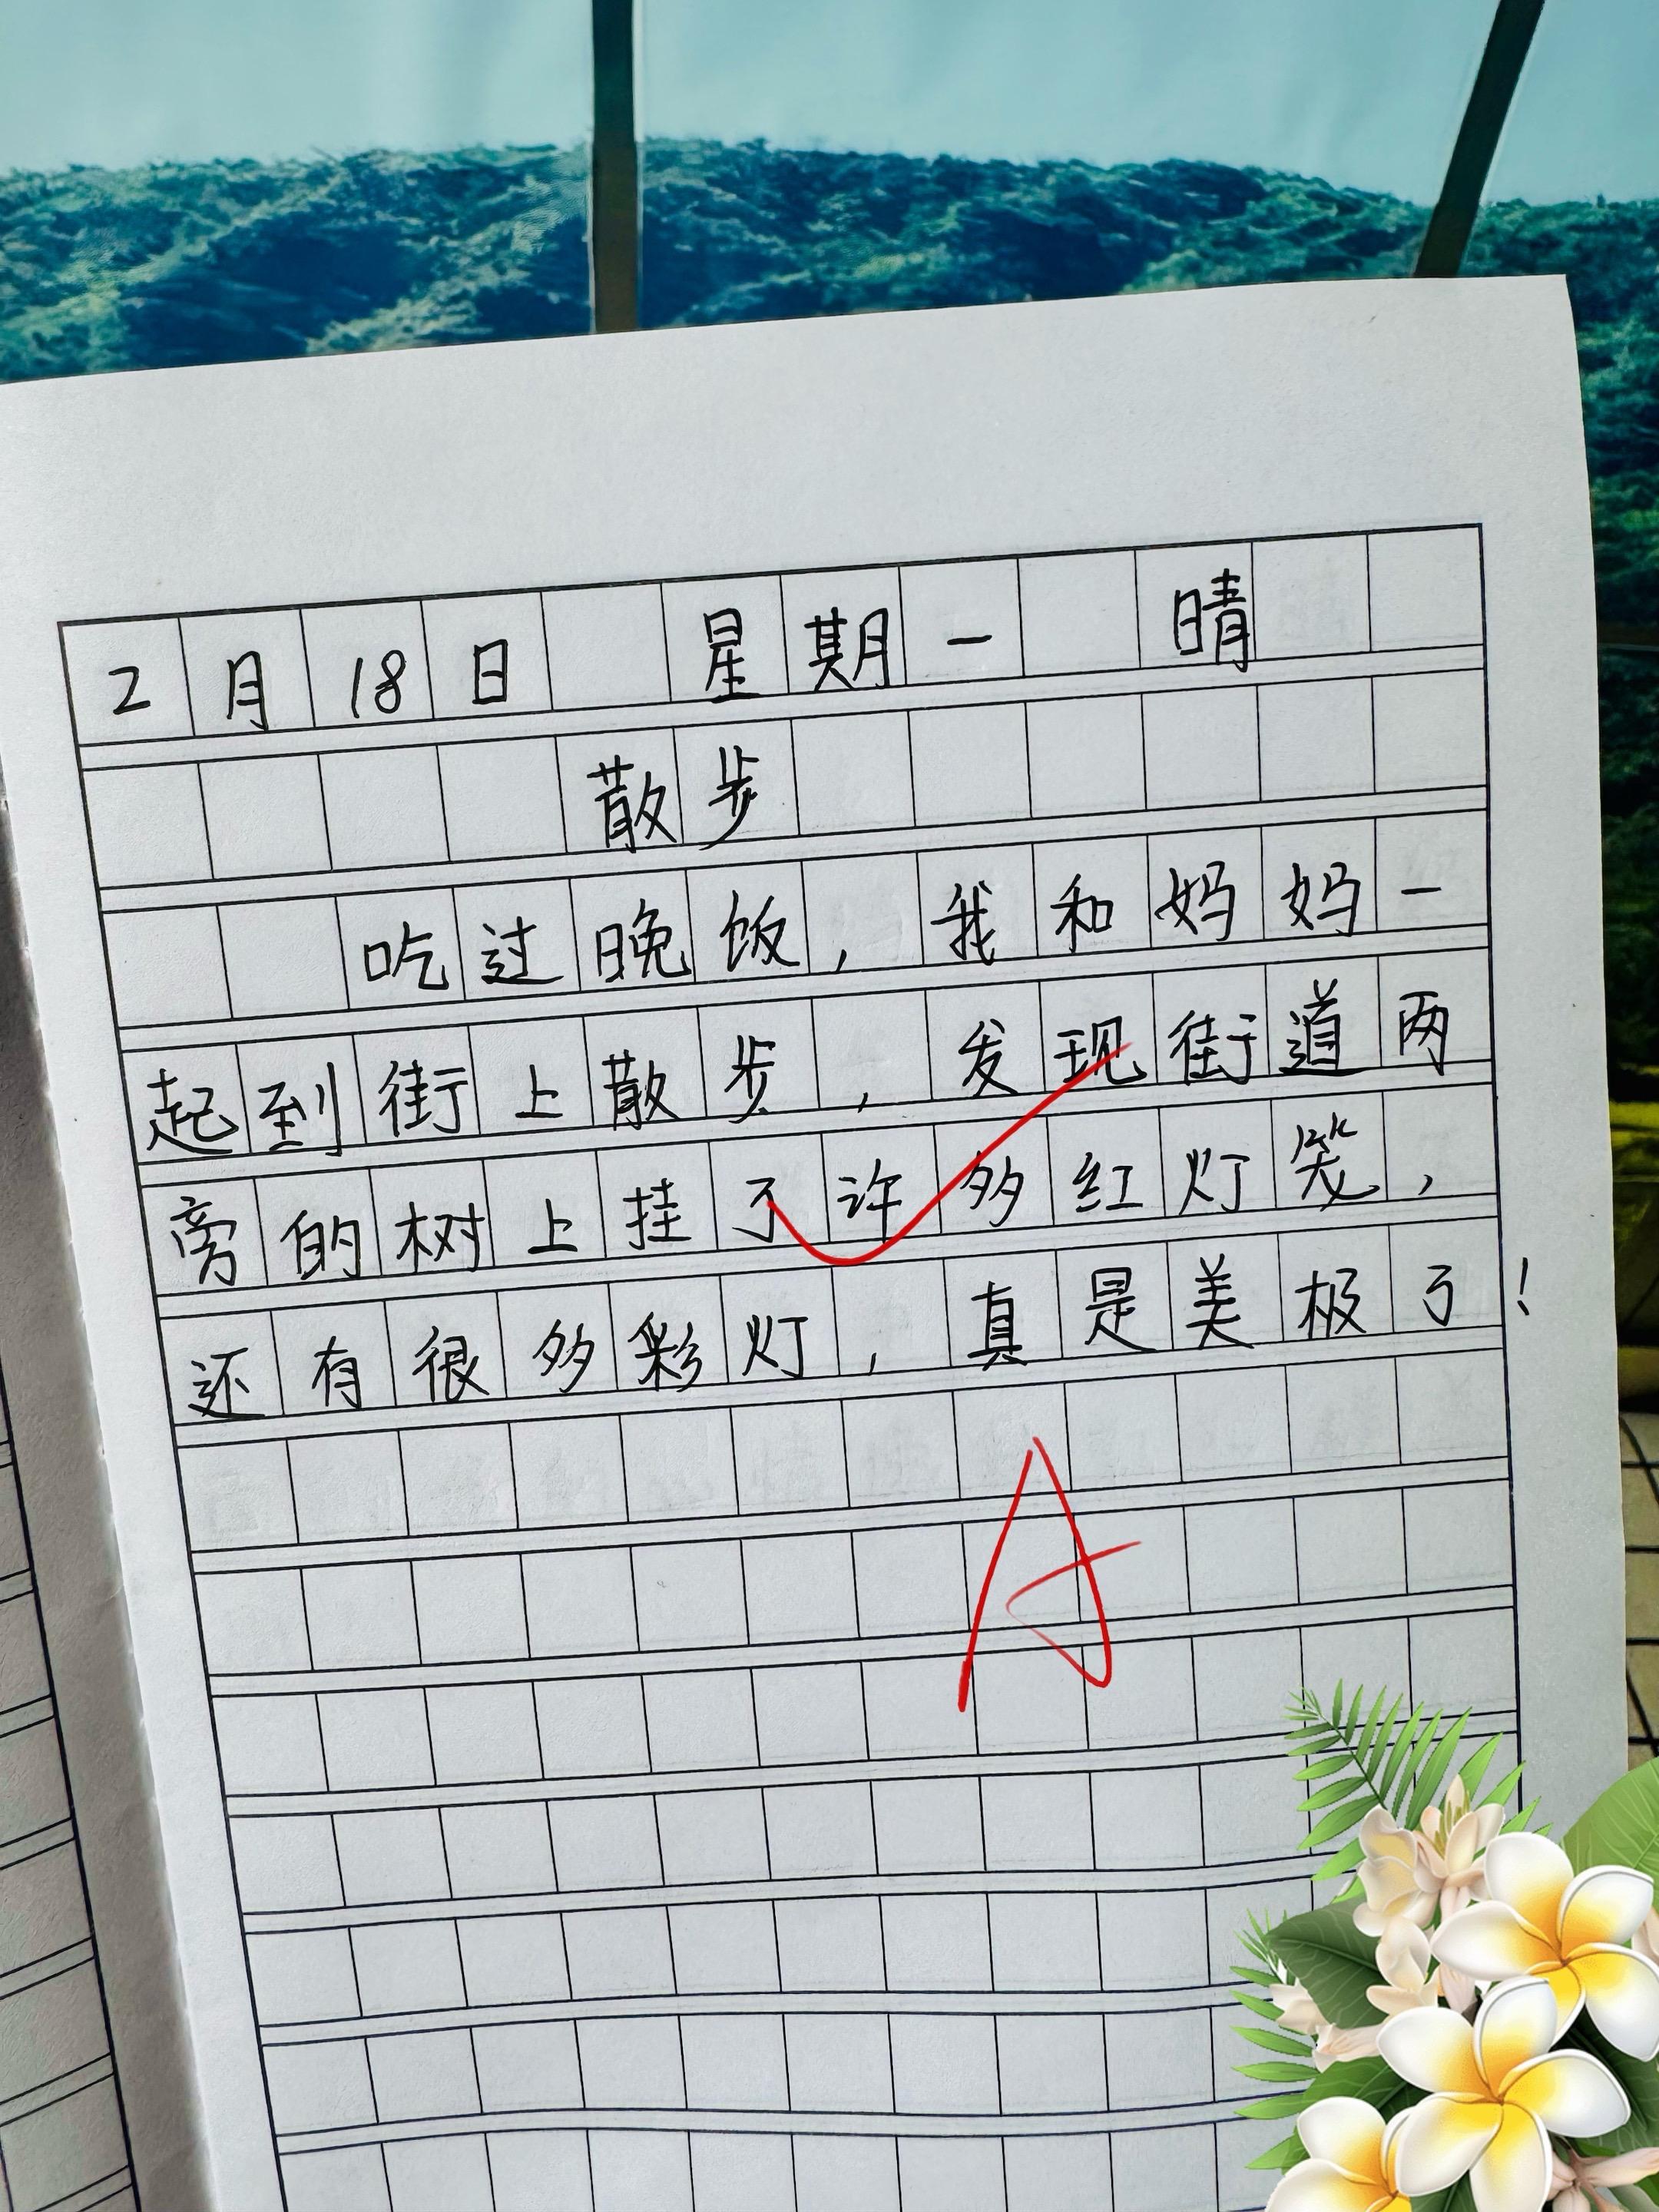 2月18日 星期一 晴
散步
吃过晚饭，我和妈妈一
起到街上散步，发现街道两
旁的树上挂了许多红灯笼，
还有很多彩灯，真是美极了！
A